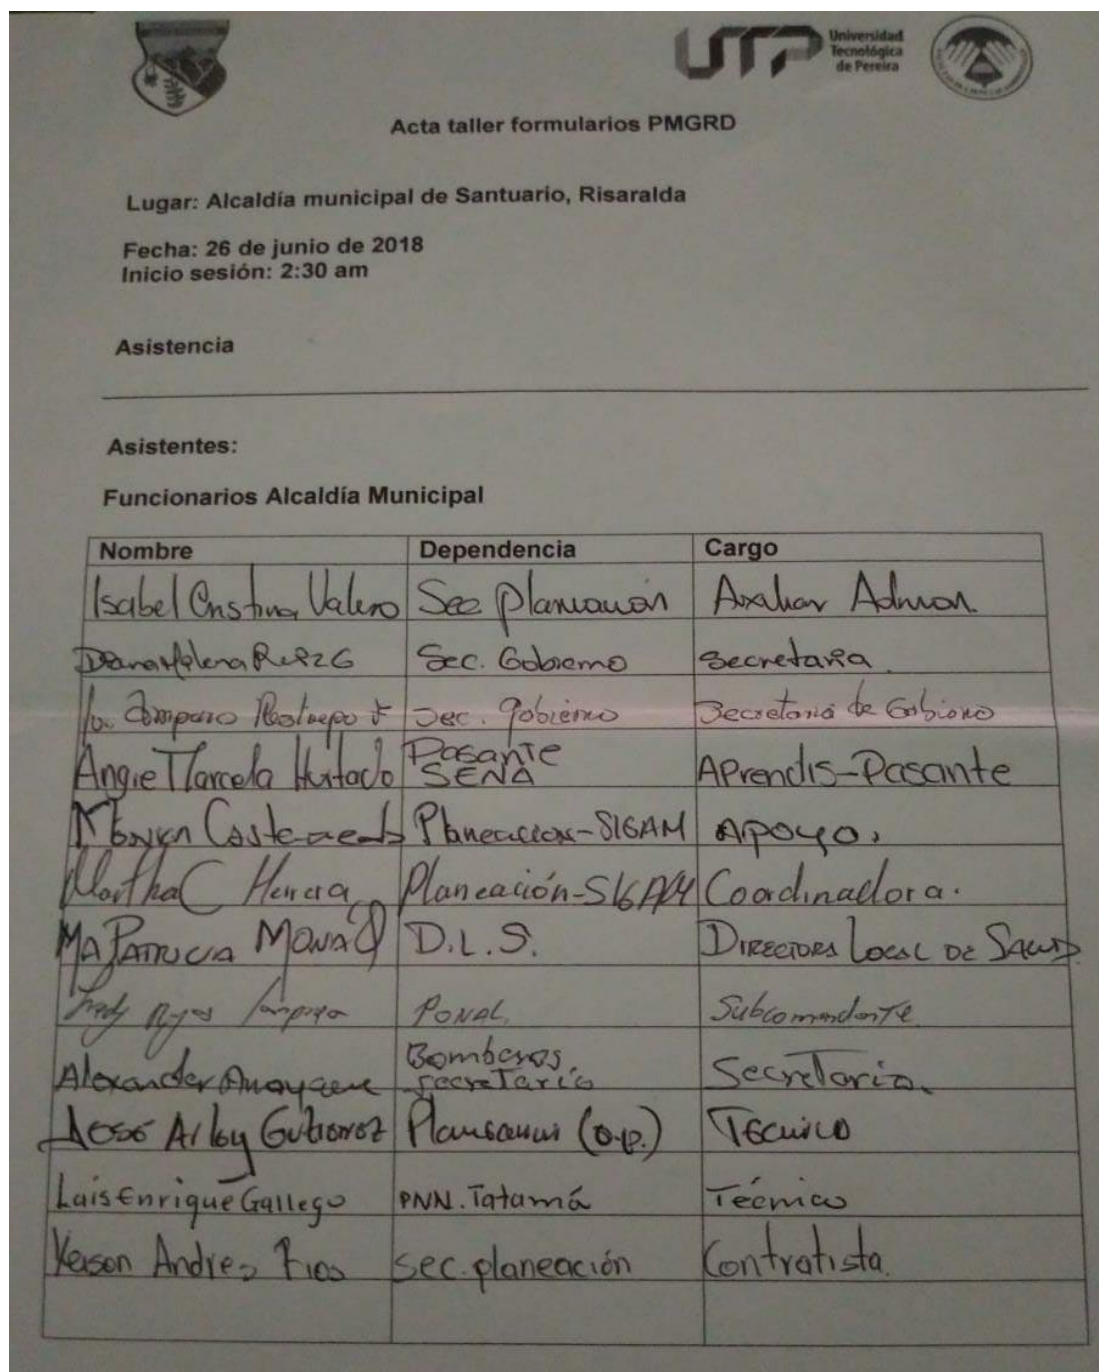 UTP Universidad
Tecnológica
de Pereira
Acta taller formularios PMGRD
Lugar: Alcaldía municipal de Santuario, Risaralda
Fecha: 26 de junio de 2018
Inicio sesión: 2:30 am
Asistencia
Asistentes:
Funcionarios Alcaldía Municipal
Nombre Dependencia Cargo
Isabel Cristina Valero Sec Planeación Auxiliar Admon.
Sec. Gobierno Secretaria
Amparo Restrepo Sec. Gobierno Secretaria de Gobierno
Angie Marcela Hurtado Pasante SENA APrendis-Pasante
Planeacion-SIGAM Apoyo.
Martha C Herrera Planeación-SIGAM Coordinadora.
Ma Patricia D.L.S. Directora Local de Salud
PONAL Subcomandante
Alexander Bomberos secretario Secretario.
José Arley Gutierrez (O.P.) Técnico
Luis Enrique Gallego PNN. Tatamá Técnico
Yeison Andres Rios sec. planeación Contratista.